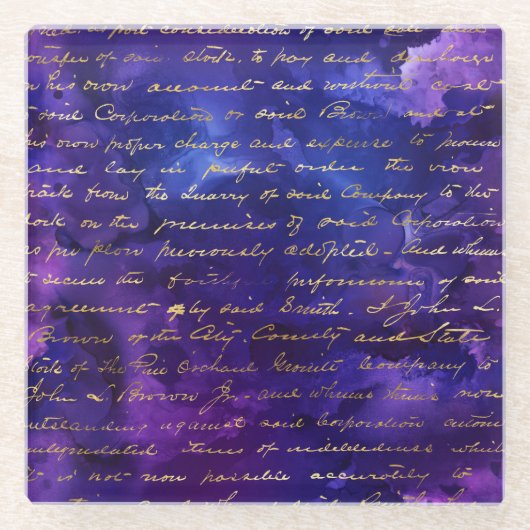 in part consideration of said sale and
transfer of said stock, to pay and discharge
on his own account and without cost
to said Corporation or said Brown and at
his own proper charge and expense to procure
and lay in perfect order the iron
track from the Quarry of said Company to the
dock on the premises of said Corporation
as per plan previously adopted - and whereas
to secure the faithful performance of said
agreement by said Smith. I John L.
Brown of the City, County and State
York of The Pine Orchard Granite Company to
John L. Brown Jr - and whereas there is now
outstanding against said Corporation
unliquidated items of indebtedness which
it is not now possible accurately to